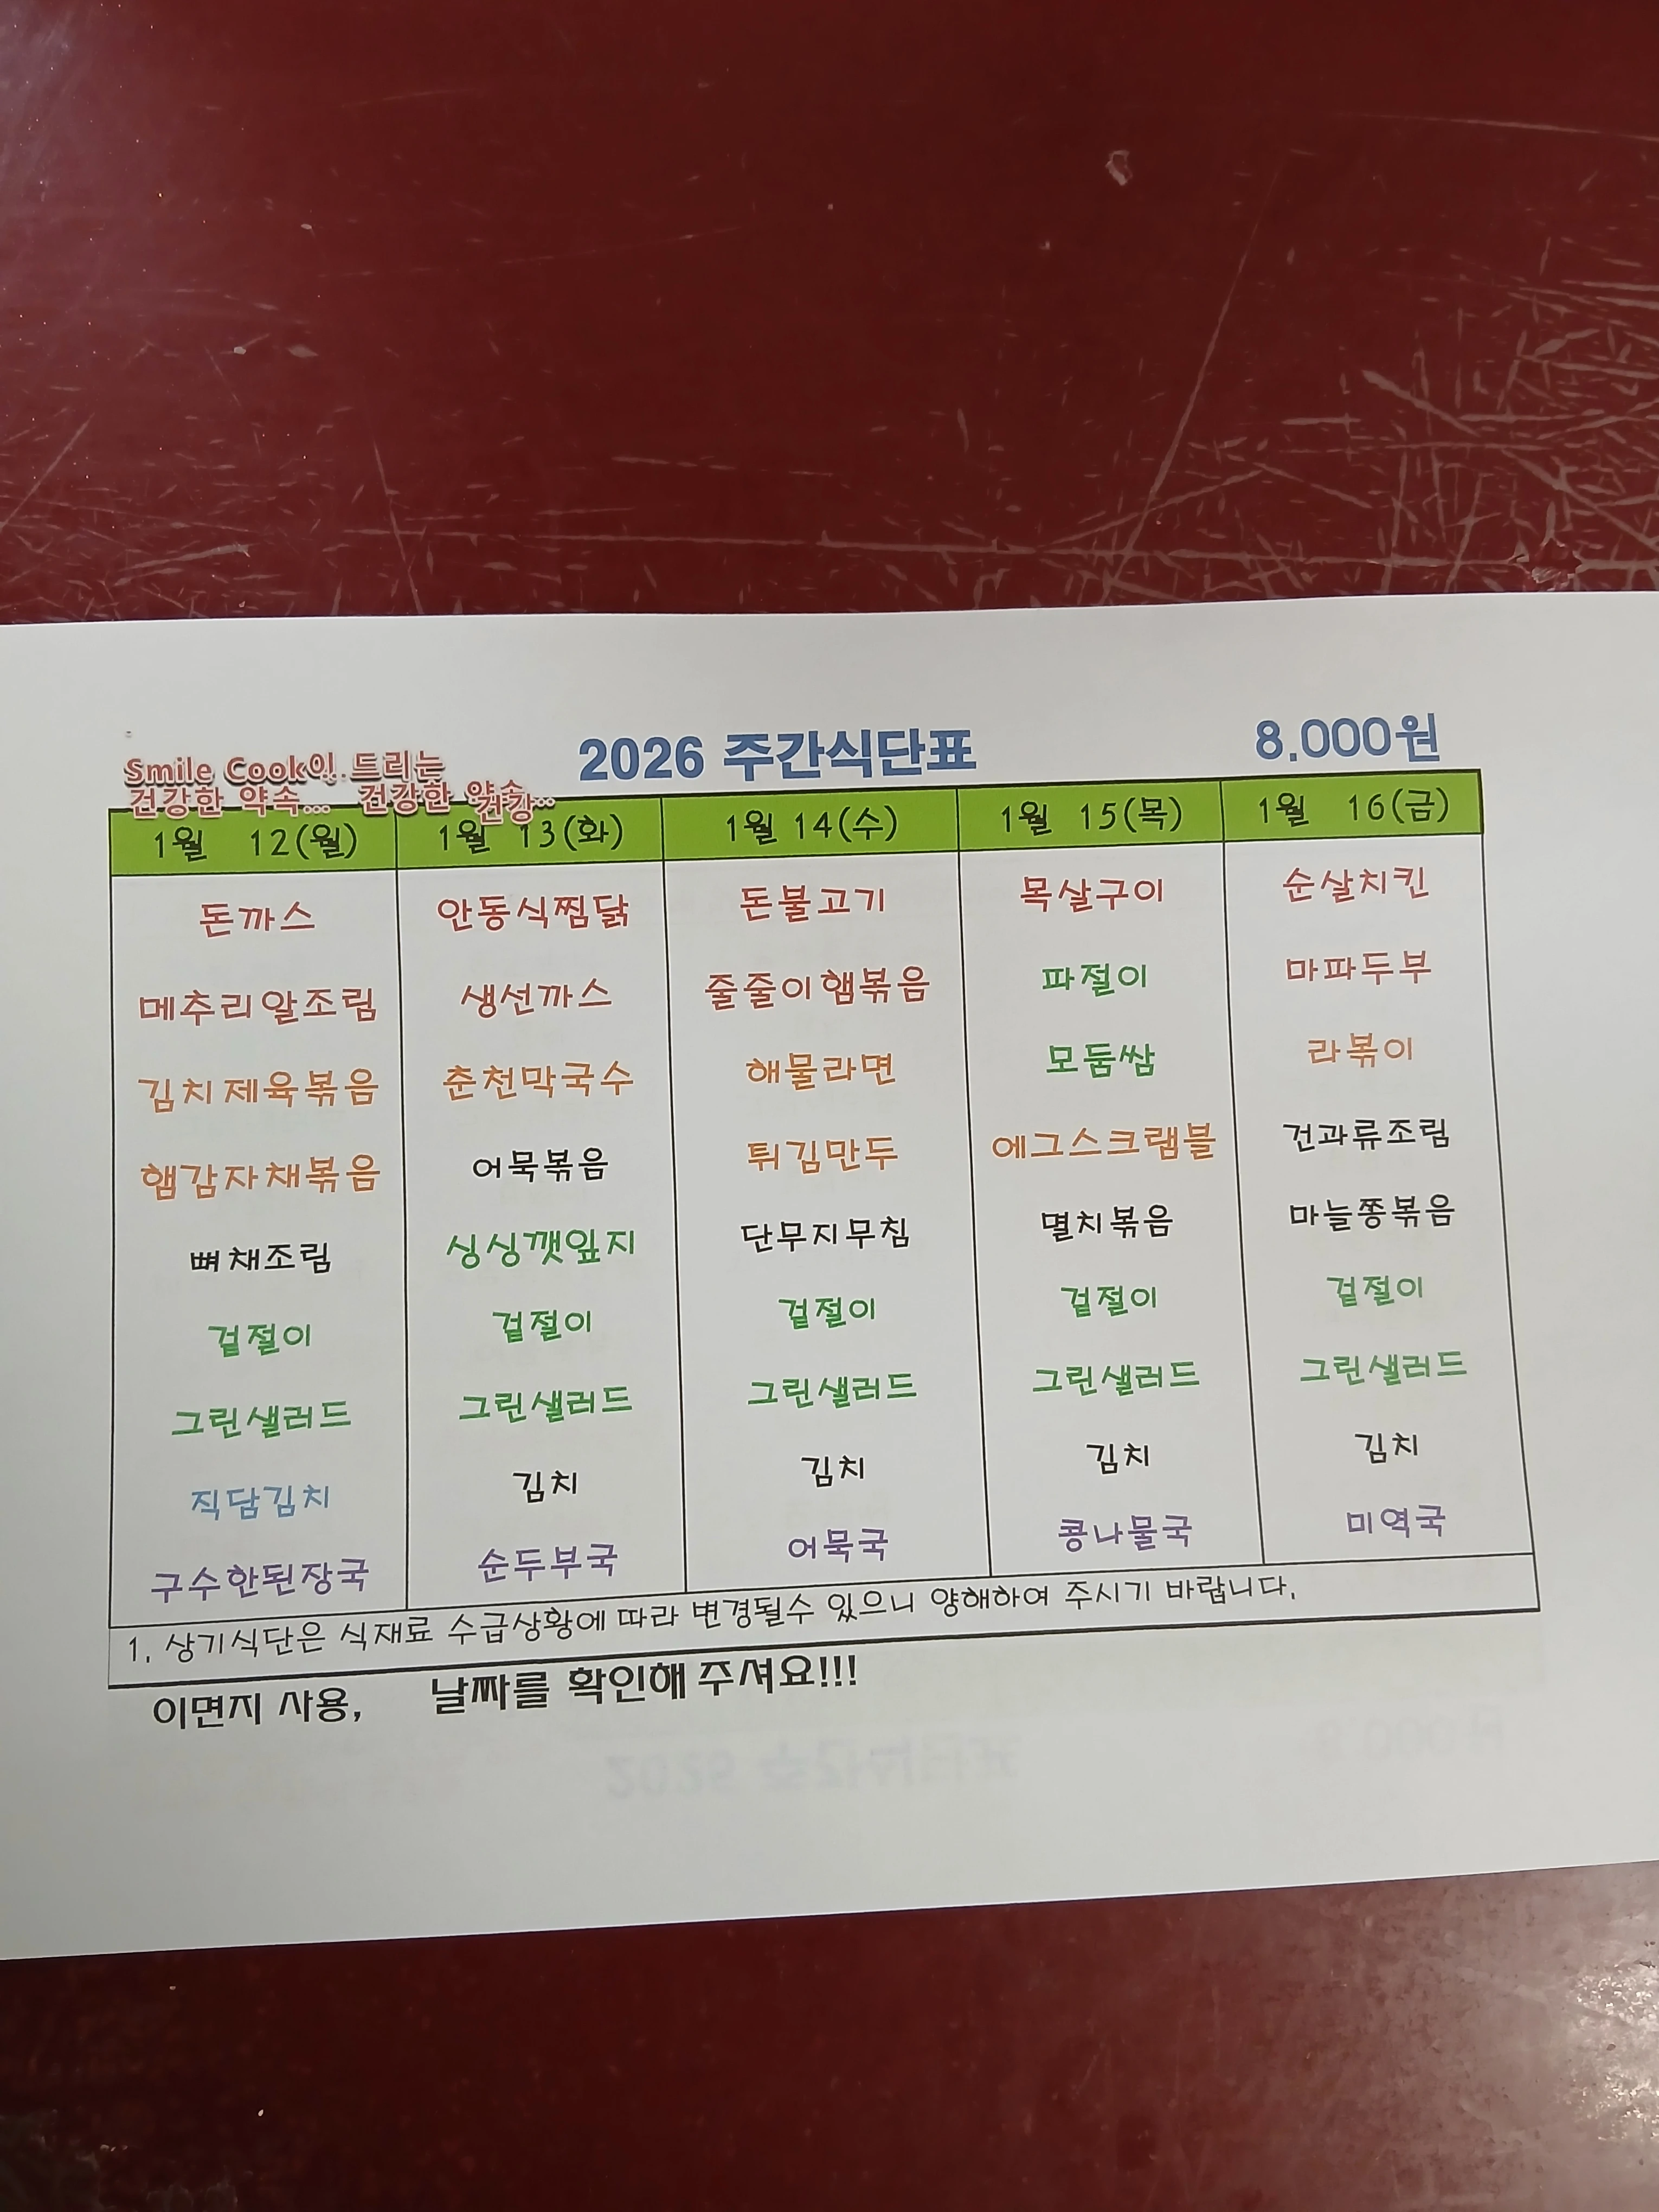 Smile Cook이 드리는
건강한 약속... 건강한 약속...
건강
2026 주간식단표
8.000원
1월 12(월) 1월 13(화) 1월 14(수) 1월 15(목) 1월 16(금)
돈까스 안동식찜닭 돈불고기 목살구이 순살치킨
메추리알조림 생선까스 줄줄이햄볶음 파절이 마파두부
김치제육볶음 춘천막국수 해물라면 모둠쌈 라볶이
햄감자채볶음 어묵볶음 튀김만두 에그스크램블 건과류조림
뼈채조림 싱싱깻잎지 단무지무침 멸치볶음 마늘쫑볶음
겉절이 겉절이 겉절이 겉절이 겉절이
그린샐러드 그린샐러드 그린샐러드 그린샐러드 그린샐러드
직담김치 김치 김치 김치 김치
구수한된장국 순두부국 어묵국 콩나물국 미역국
1. 상기식단은 식재료 수급상황에 따라 변경될수 있으니 양해하여 주시기 바랍니다.
이면지 사용, 날짜를 확인해 주셔요!!!